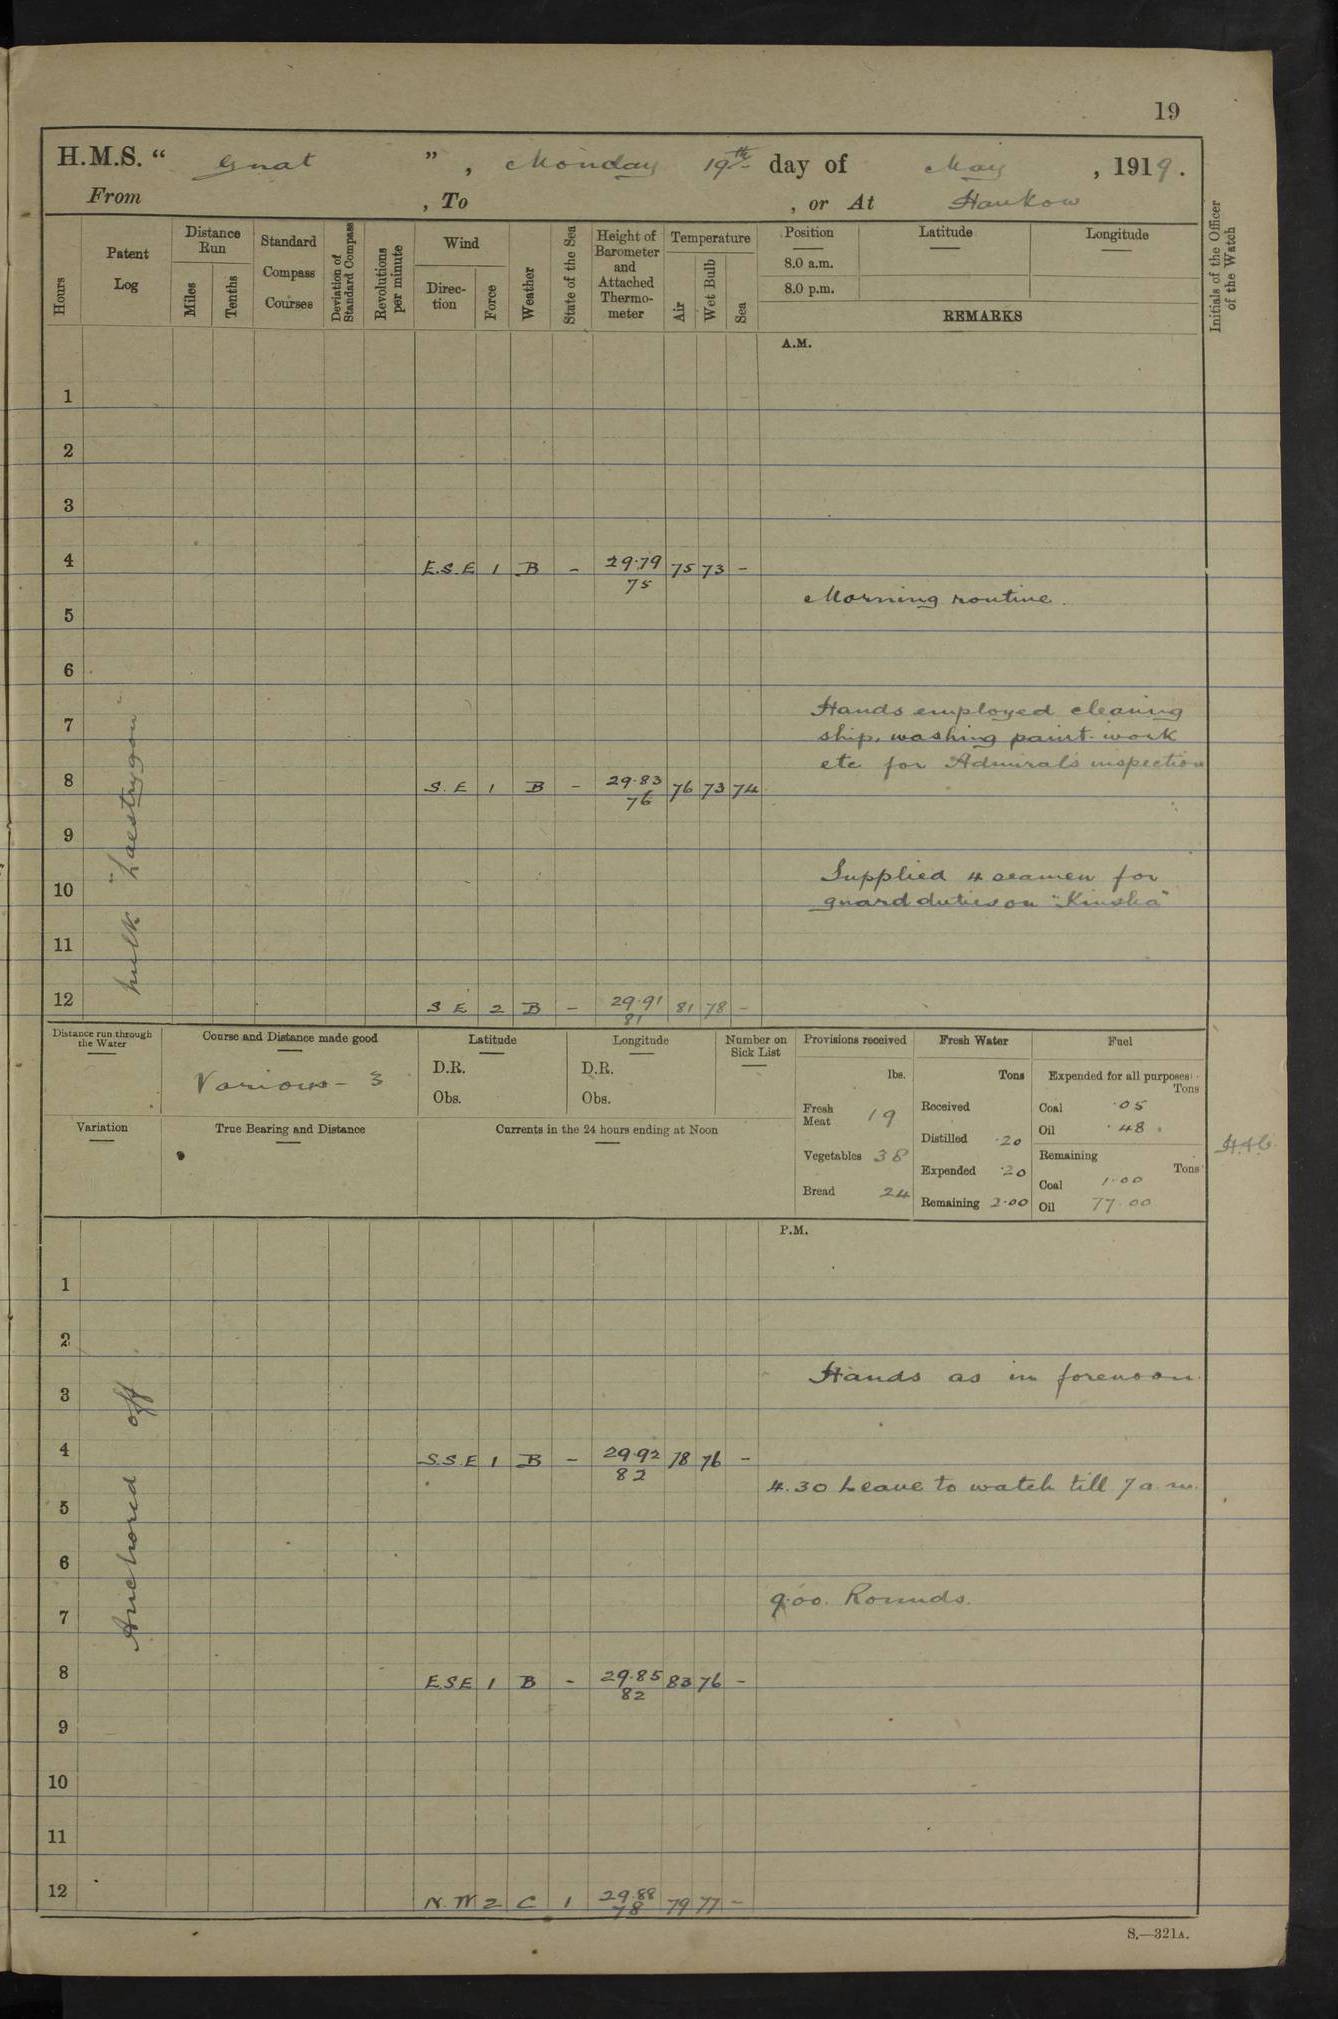 19
H.M.S. “ Gnat ” , Monday 19th day of May , 1919.
From , To , or At Hankow
Hours
Patent Log
Distance Run
Miles
Tenths
Standard Compass Courses
Deviation of Standard Compass
Revolutions per minute
Wind
Direction
Force
Weather
State of the Sea
Height of Barometer and Attached Thermometer
Temperature
Air
Wet Bulb
Sea
Position
8.0 a.m.
8.0 p.m.
Latitude
Longitude
REMARKS
Initials of the Officer of the Watch
A.M.
1
2
3
4 E.S.E 1 B - 29.79 75 75 73 -
Morning routine.
5
6
Hands employed cleaning
7
ship, washing paint-work
etc for Admiral's inspection
8 S.E 1 B - 29.83 76 76 73 74
9
Supplied 4 seamen for
10
guard duties on "Kinsha"
11
12 S E 2 B - 29.91 81 81 78 -
hulk "Laestrygon"
Distance run through the Water
Course and Distance made good
Various - 3
Latitude
D.R.
Obs.
Longitude
D.R.
Obs.
Number on Sick List
Provisions received
lbs.
Fresh Meat 19
Vegetables 38
Bread 24
Fresh Water
Tons
Received
Distilled .20
Expended .20
Remaining 2.00
Fuel
Expended for all purposes
Tons
Coal .05
Oil .48
Remaining
Tons
Coal 1.00
Oil 77.00
Variation
True Bearing and Distance
Currents in the 24 hours ending at Noon
P.M.
1
2
Hands as in forenoon.
3
4 S.S.E 1 B - 29.92 82 78 76 -
4.30 Leave to watch till 7 a.m.
5
6
9.00. Rounds.
7
8 E.S.E 1 B - 29.85 82 83 76 -
9
10
11
12 N.W 2 C 1 29.88 78 79 77 -
Anchored off
S.—321A.